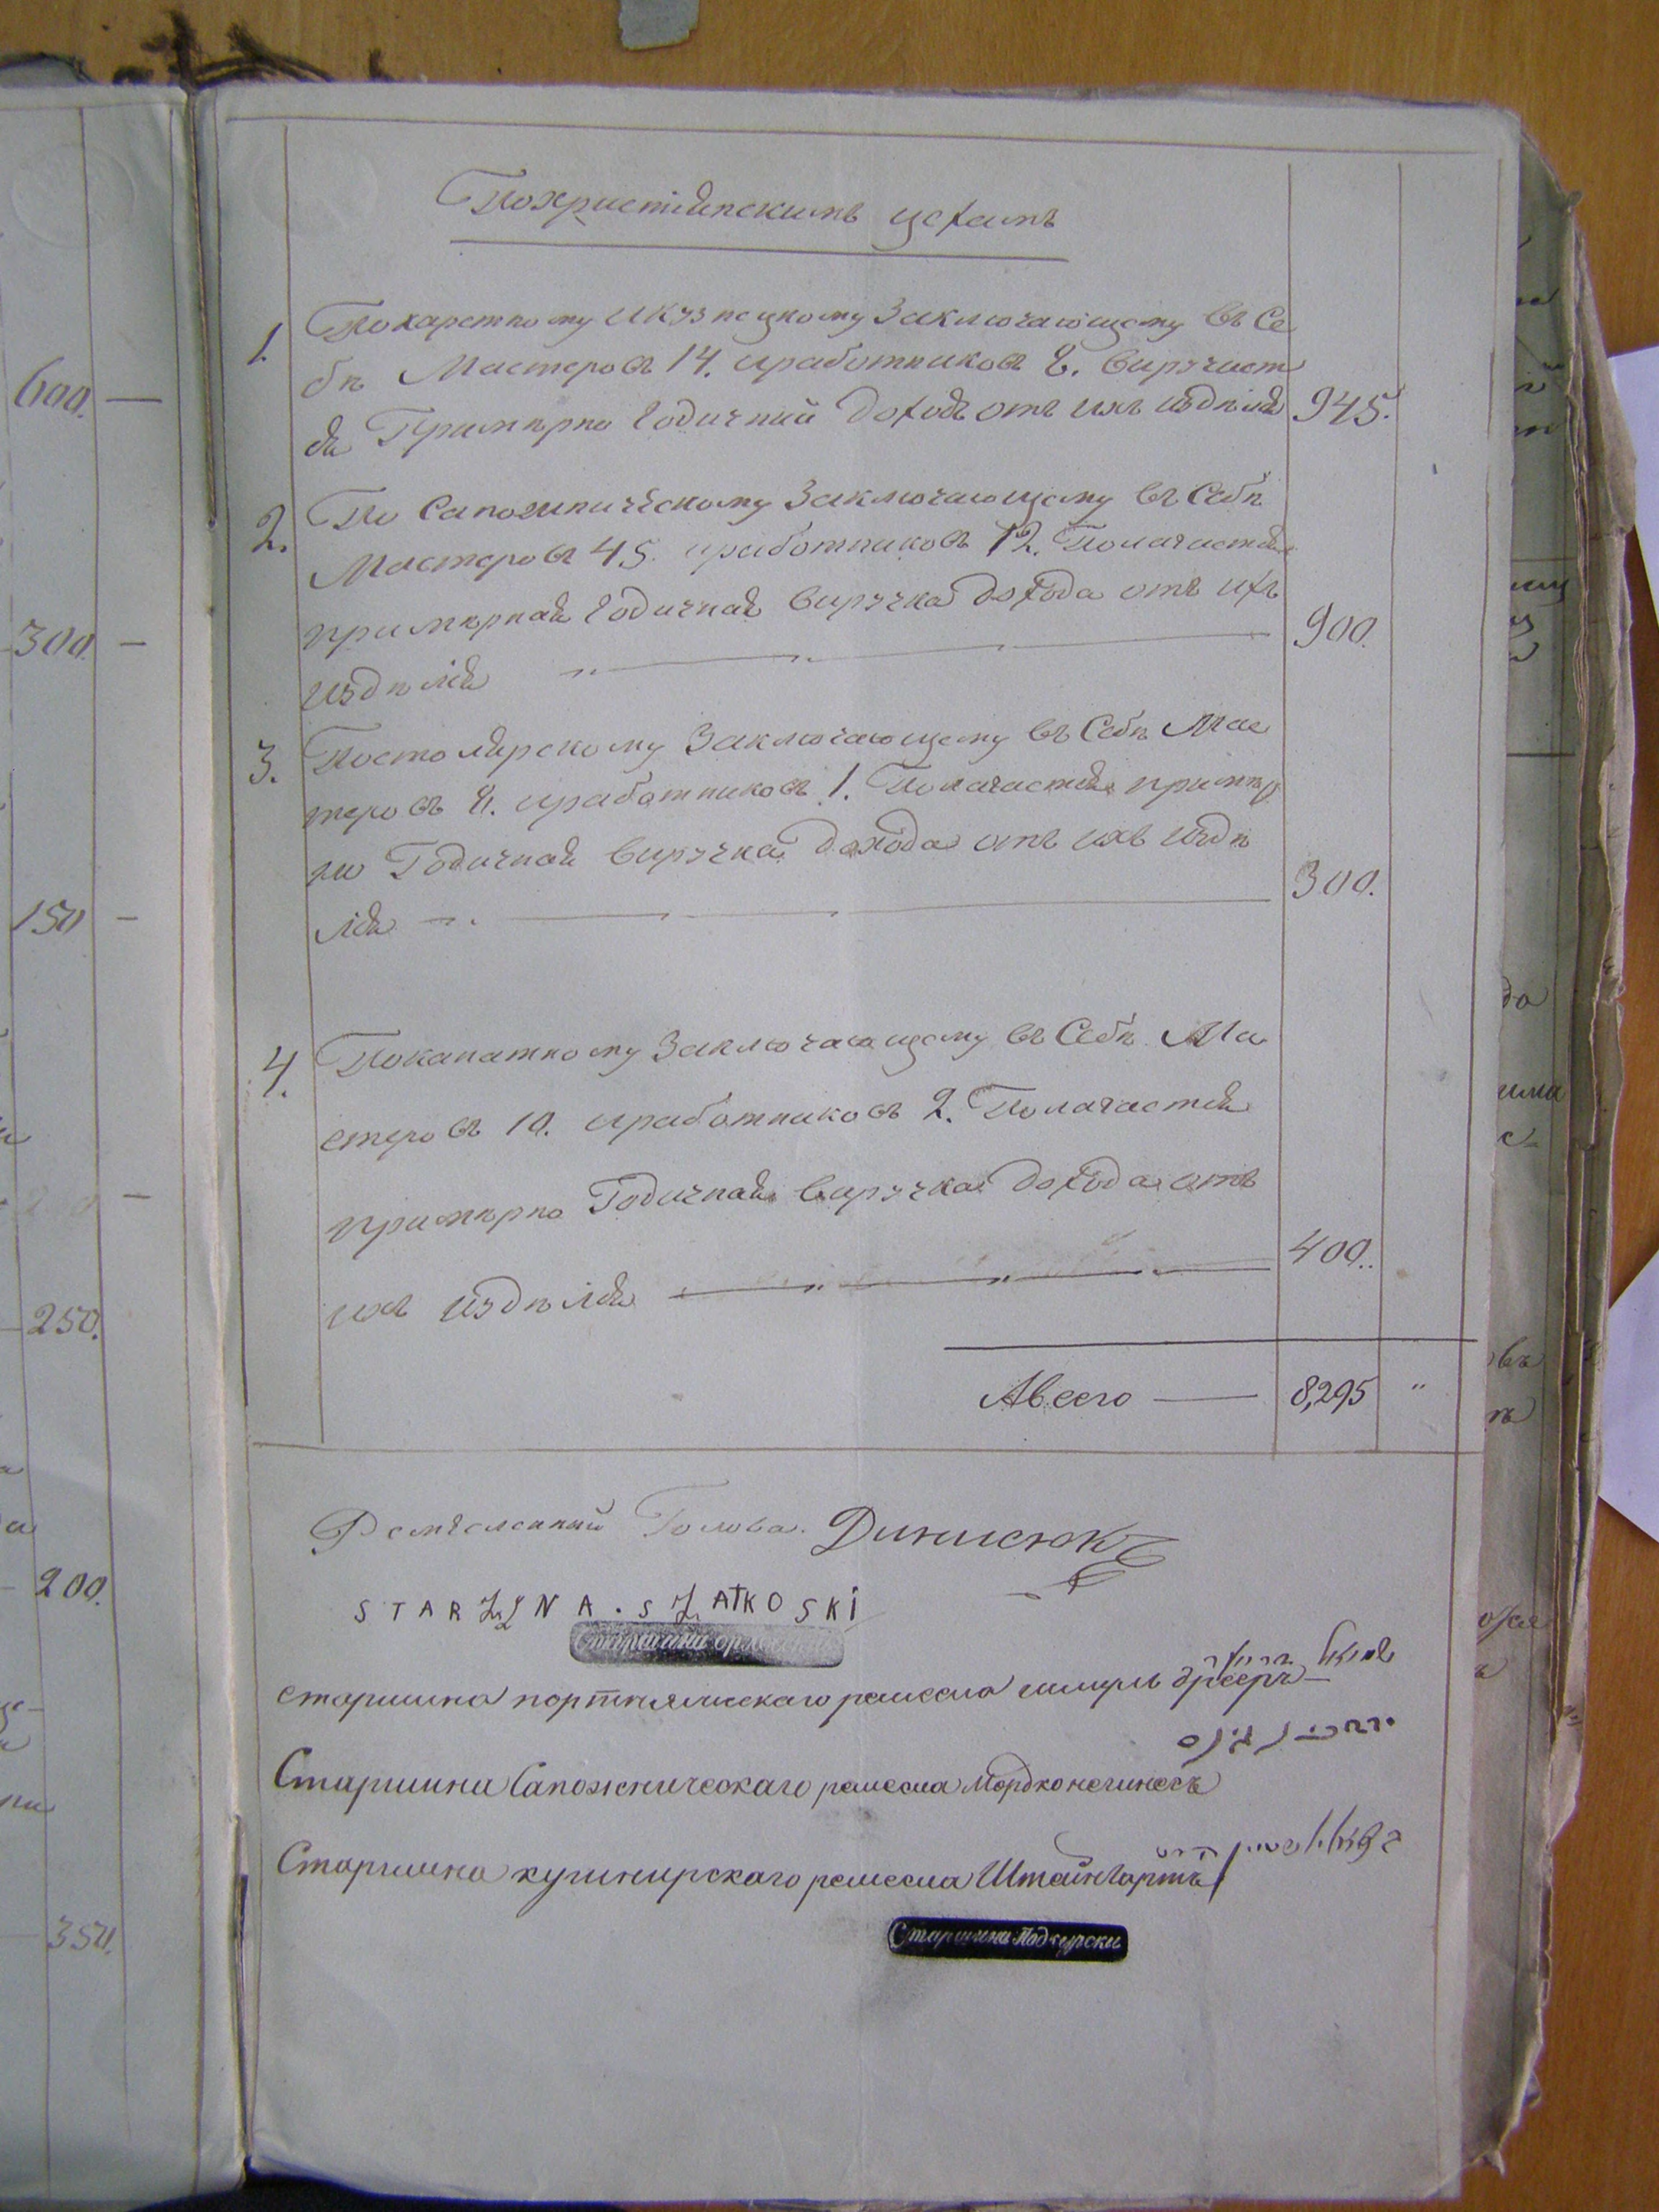 600. —
300. —
150 —
250.
200.
350.
Похристіянскимъ цехамъ
1. Покаретному икузнецкому Заключающему въ Се
бѣ Мастеровъ 14. иработниковъ 8. Вируч
Примѣрно Годичний Доходъ отъ ихъ издѣлія 945.
2. По Сапожническому Заключающему въ Себѣ
Мастеровъ 45. иработниковъ 12. Полагается
примѣрная Годичная Вируччка дохода отъ ихъ
издѣлія 900.
3. Постолярскому Заключающему въ Себѣ Мас
теровъ 8. иработниковъ 1. Полагается примѣр
но Годичная Виручка Дохода отъ ихъ издѣ
лія 300.
4. Поканатному Заключающему въ Себѣ Ма
стеровъ 10. иработниковъ 2. Полагается
примѣрно Годичная Виручка Дохода отъ
ихъ издѣлія 400.
Авсего — 8,295 "
Ремесленний Голова. Динисюкъ
STARZYNA. SZATKOSKI
Старшина
старшина портняческаго ремесла шмуль
Старшина Сапожническаго ремесла Мордко
Старшина кушнирскаго ремесла Штайнгартъ
Старшина Подгурски